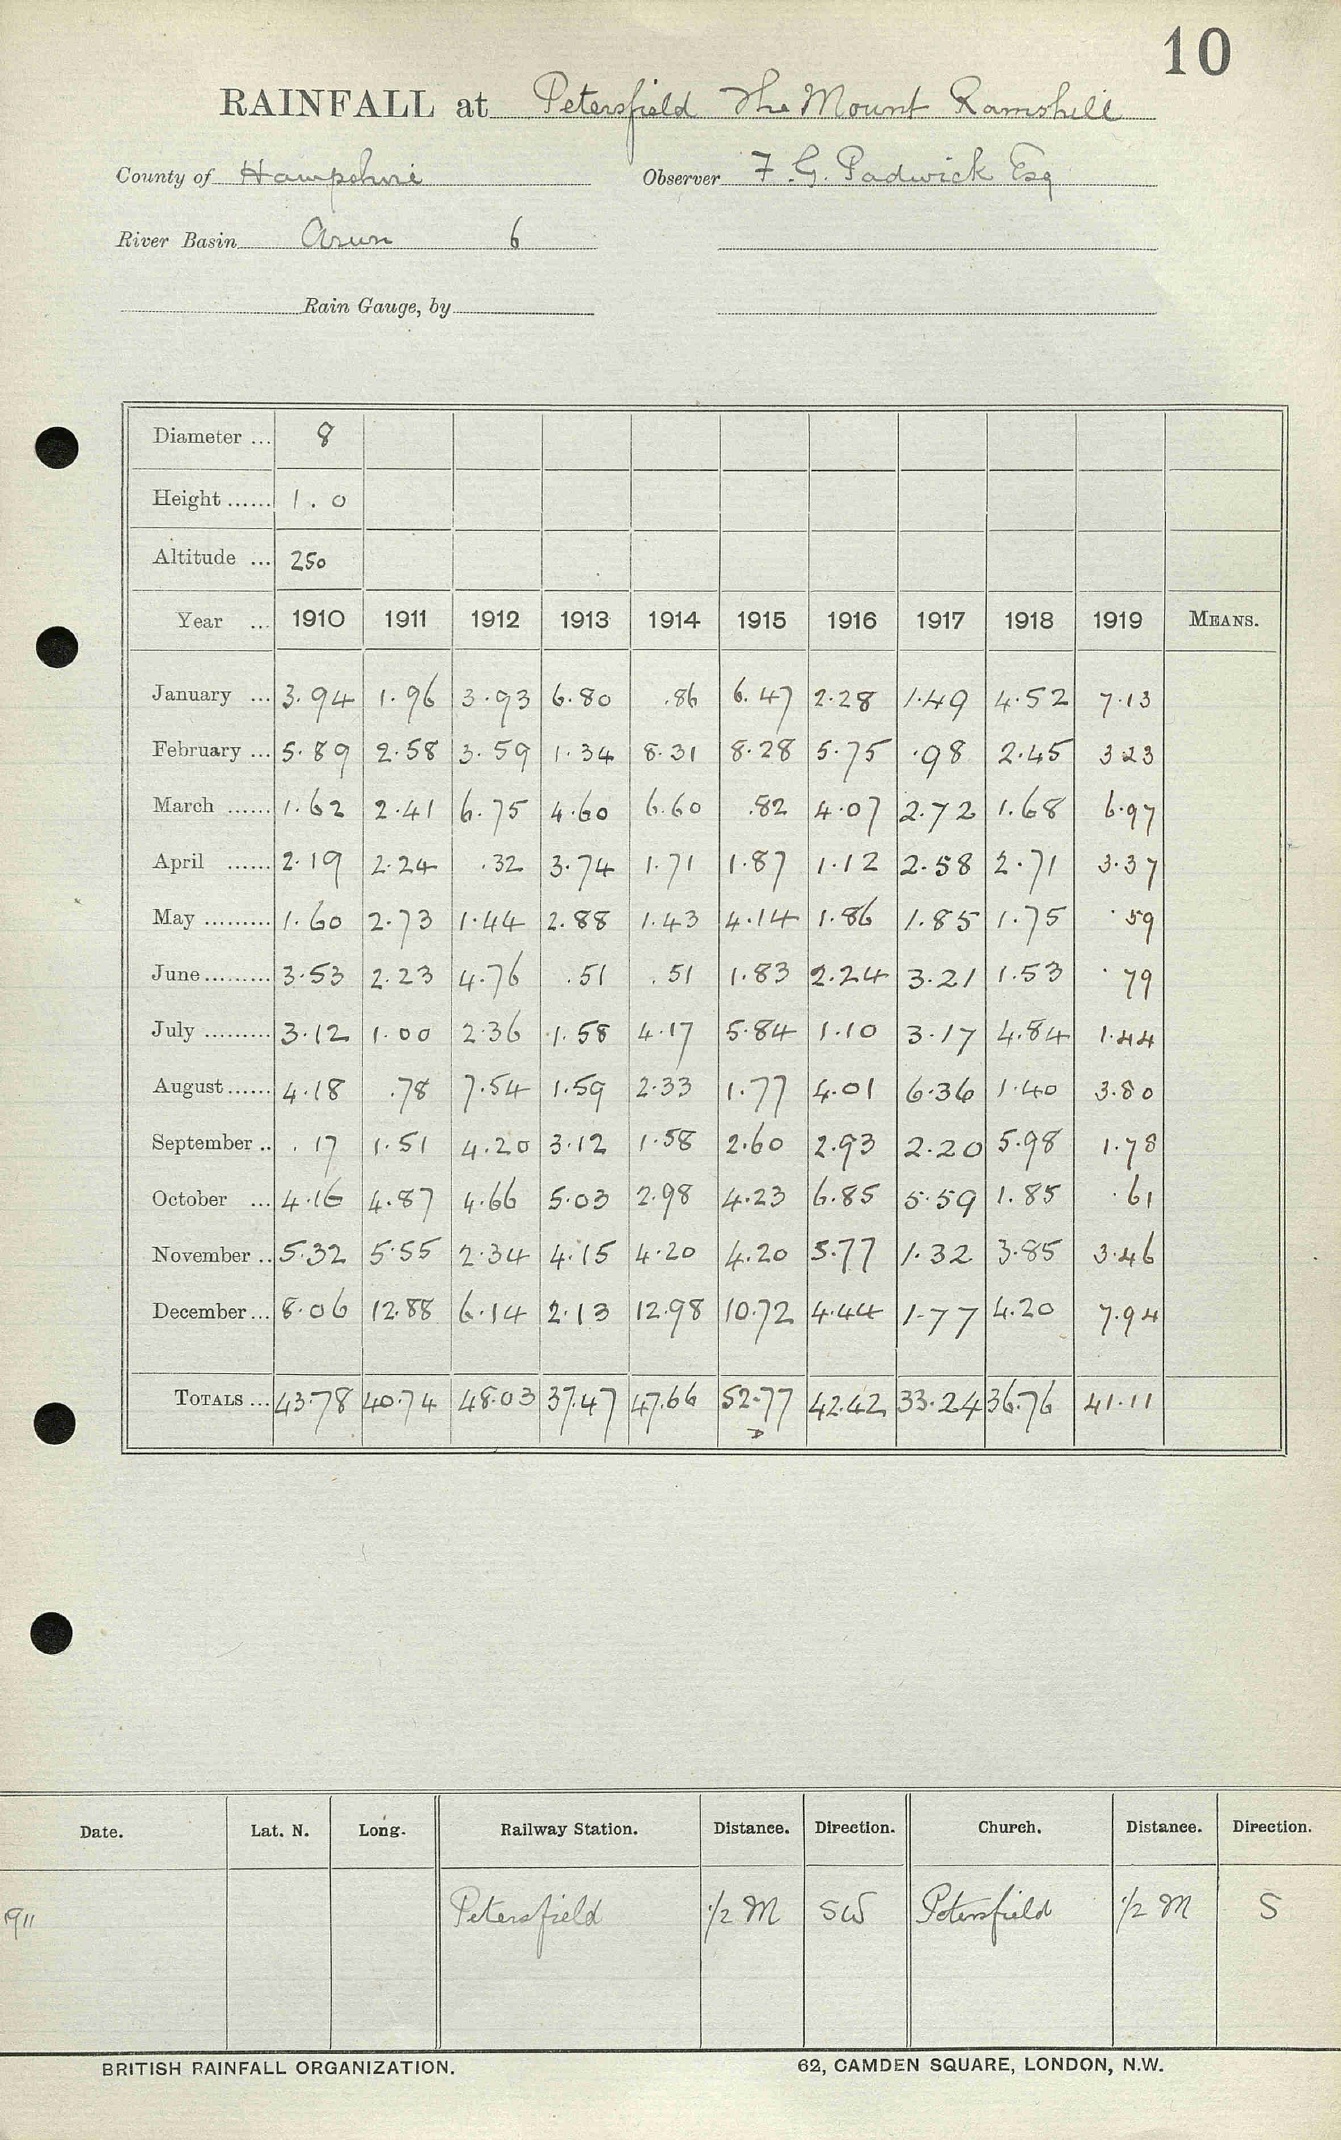 10
RAINFALL at Petersfield The Mount Ramshill
County of Hampshire Observer F. G. Padwick Esq
River Basin Arun 6
Rain Gauge, by
Diameter ... 8
Height ...... 1.0
Altitude ... 250
Year ... 1910 1911 1912 1913 1914 1915 1916 1917 1918 1919 MEANS.
January ... 3.94 1.96 3.93 6.80 .86 6.47 2.28 1.49 4.52 7.13
February ... 5.89 2.58 3.59 1.34 8.31 8.28 5.75 .98 2.45 3.23
March ...... 1.62 2.41 6.75 4.60 6.60 .82 4.07 2.72 1.68 6.97
April ...... 2.19 2.24 .32 3.74 1.71 1.87 1.12 2.58 2.71 3.37
May ......... 1.60 2.73 1.44 2.88 1.43 4.14 1.86 1.85 1.75 .59
June ......... 3.53 2.23 4.76 .51 .51 1.83 2.24 3.21 1.53 .79
July ......... 3.12 1.00 2.36 1.58 4.17 5.84 1.10 3.17 4.84 1.44
August ...... 4.18 .78 7.54 1.59 2.33 1.77 4.01 6.36 1.40 3.80
September .. .17 1.51 4.20 3.12 1.58 2.60 2.93 2.20 5.98 1.78
October ... 4.16 4.87 4.66 5.03 2.98 4.23 6.85 5.59 1.85 .61
November .. 5.32 5.55 2.34 4.15 4.20 4.20 5.77 1.32 3.85 3.46
December ... 8.06 12.88 6.14 2.13 12.98 10.72 4.44 1.77 4.20 7.94
TOTALS ... 43.78 40.74 48.03 37.47 47.66 52.77 42.42 33.24 36.76 41.11
D
Date. Lat. N. Long. Railway Station. Distance. Direction. Church. Distance. Direction.
1911 Petersfield 1/2 M SW Petersfield 1/2 M S
BRITISH RAINFALL ORGANIZATION. 62, CAMDEN SQUARE, LONDON, N.W.